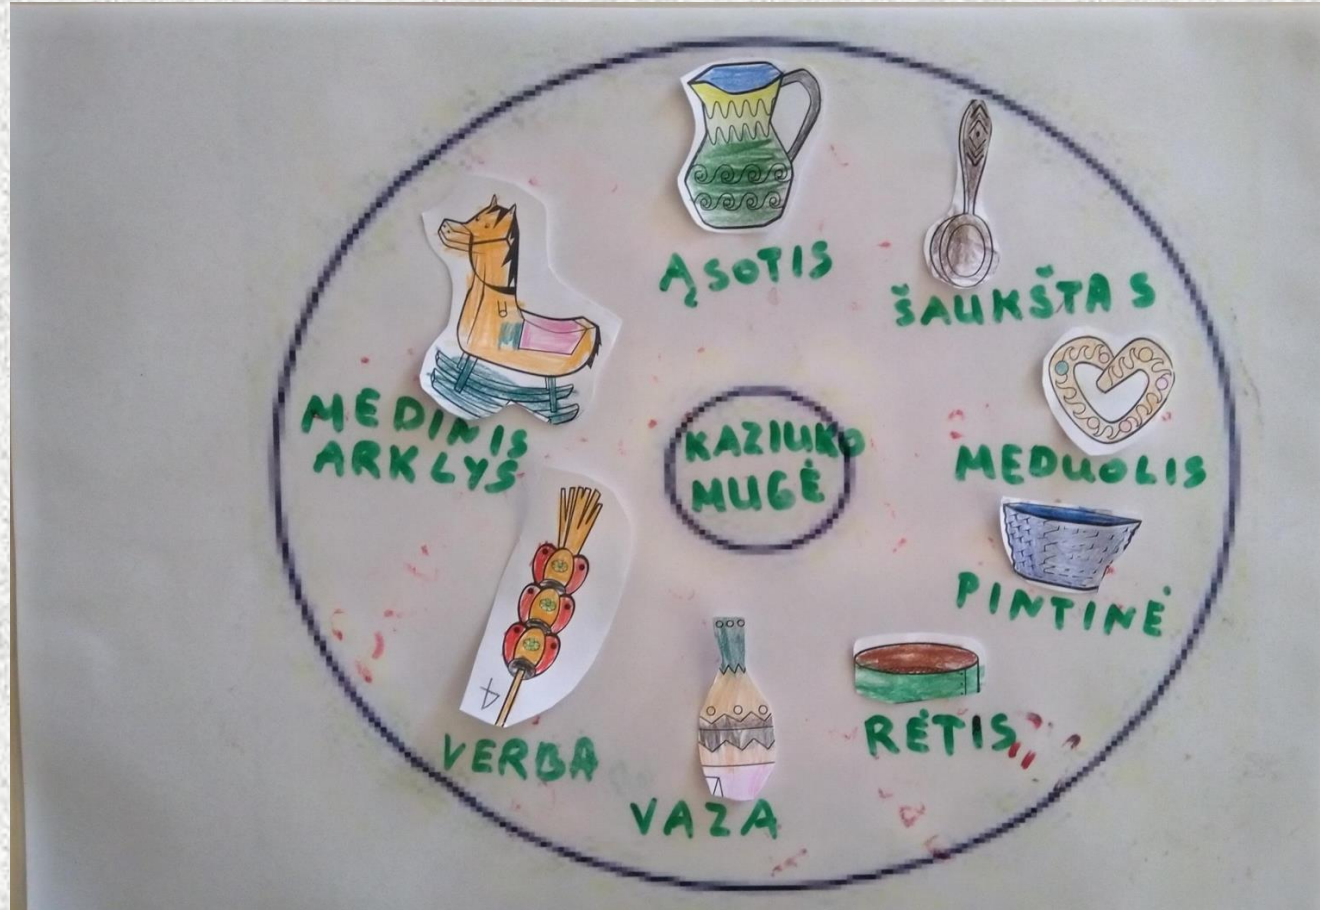 ĄSOTIS
ŠAUKŠTAS
MEDINIS
ARKLYS
KAZIUKO
MUGĖ
MEDUOLIS
PINTINĖ
RĖTIS
VERBA
VAZA
4